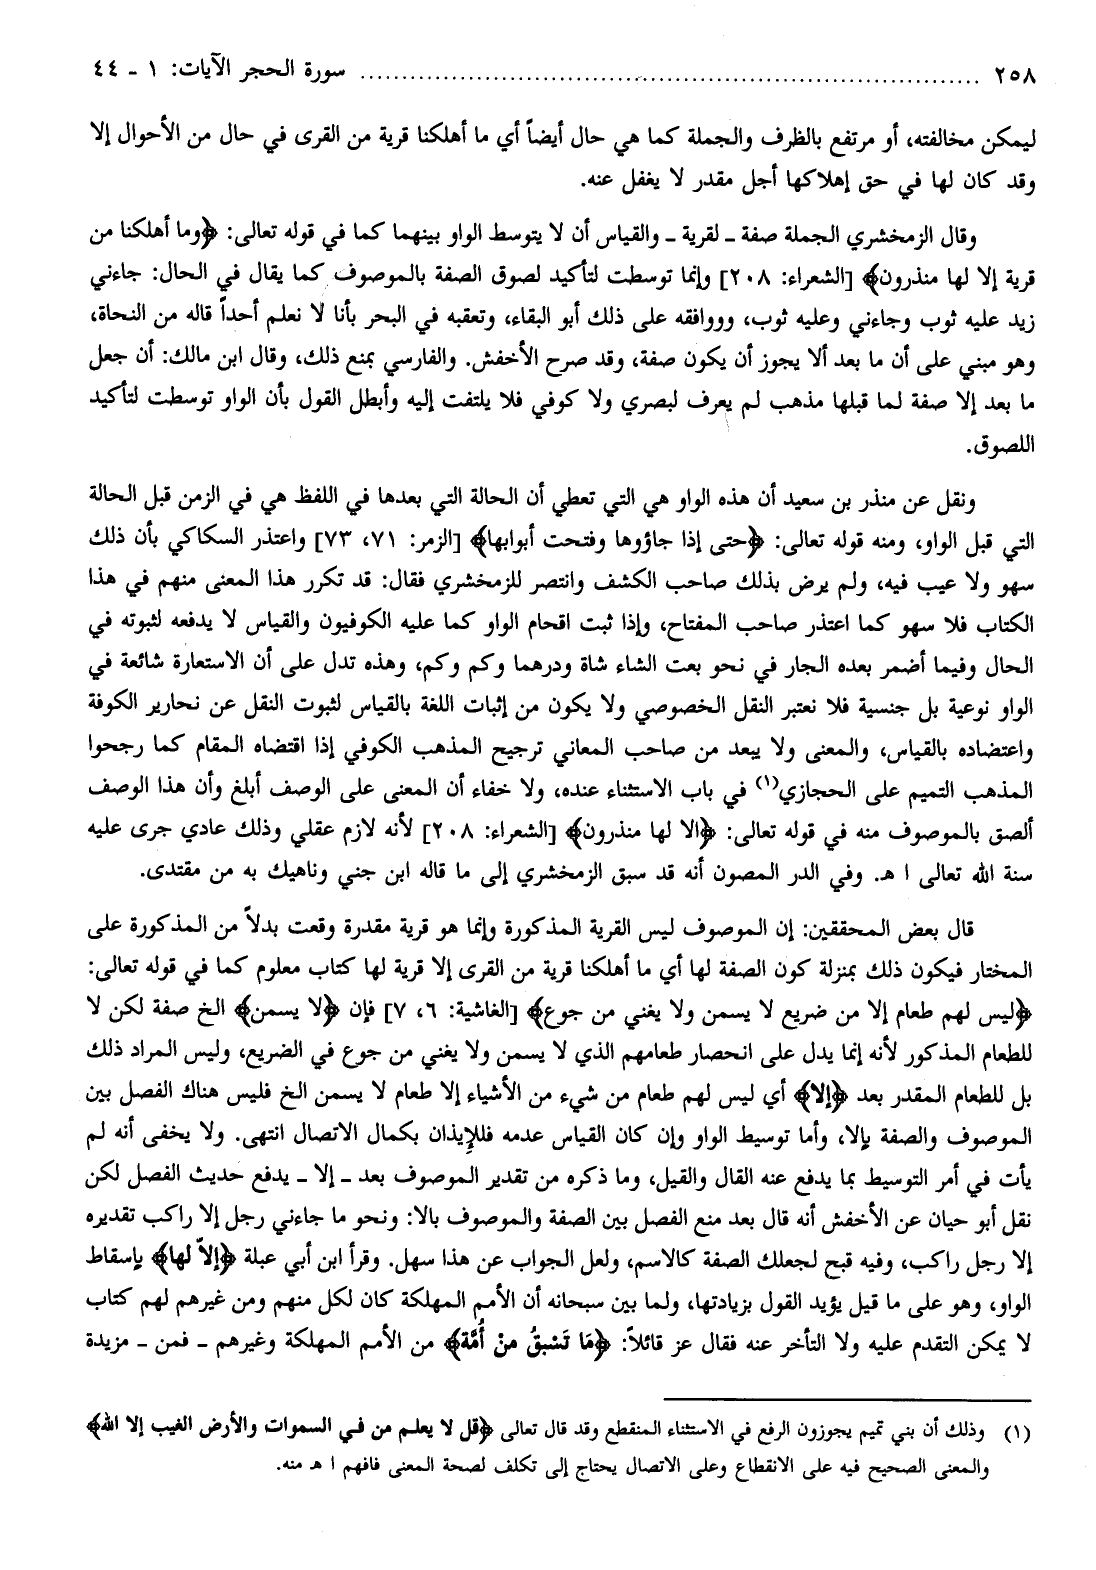 ٢٥٨ ........................................ سورة الحجر الآيات: ١ ـ ٤٤
ليمكن مخالفته، أو مرتفع بالظرف والجملة كما هي حال أيضاً أي ما أهلكنا قرية من القرى في حال من الأحوال إلا
وقد كان لها في حق إهلاكها أجل مقدر لا يغفل عنه.
وقال الزمخشري الجملة صفة ـ لقرية ـ والقياس أن لا يتوسط الواو بينهما كما في قوله تعالى: ﴿وما أهلكنا من
قرية إلا لها منذرون﴾ [الشعراء: ٢٠٨] وإنما توسطت لتأكيد لصوق الصفة بالموصوف كما يقال في الحال: جاءني
زيد عليه ثوب وجاءني وعليه ثوب، وووافقه على ذلك أبو البقاء، وتعقبه في البحر بأنا لا نعلم أحداً قاله من النحاة،
وهو مبني على أن ما بعد ألا يجوز أن يكون صفة، وقد صرح الأخفش. والفارسي بمنع ذلك، وقال ابن مالك: أن جعل
ما بعد إلا صفة لما قبلها مذهب لم يعرف لبصري ولا كوفي فلا يلتفت إليه وأبطل القول بأن الواو توسطت لتأكيد
اللصوق.
ونقل عن منذر بن سعيد أن هذه الواو هي التي تعطي أن الحالة التي بعدها في اللفظ هي في الزمن قبل الحالة
التي قبل الواو، ومنه قوله تعالى: ﴿حتى إذا جاؤوها وفتحت أبوابها﴾ [الزمر: ٧١، ٧٣] واعتذر السكاكي بأن ذلك
سهو ولا عيب فيه، ولم يرض بذلك صاحب الكشف وانتصر للزمخشري فقال: قد تكرر هذا المعنى منهم في هذا
الكتاب فلا سهو كما اعتذر صاحب المفتاح، وإذا ثبت اقحام الواو كما عليه الكوفيون والقياس لا يدفعه لثبوته في
الحال وفيما أضمر بعده الجار في نحو بعت الشاء شاة ودرهما وكم وكم، وهذه تدل على أن الاستعارة شائعة في
الواو نوعية بل جنسية فلا نعتبر النقل الخصوصي ولا يكون من إثبات اللغة بالقياس لثبوت النقل عن نحارير الكوفة
واعتضاده بالقياس، والمعنى ولا يبعد من صاحب المعاني ترجيح المذهب الكوفي إذا اقتضاه المقام كما رجحوا
المذهب التميم على الحجازي(١) في باب الاستثناء عنده، ولا خفاء أن المعنى على الوصف أبلغ وأن هذا الوصف
ألصق بالموصوف منه في قوله تعالى: ﴿الا لها منذرون﴾ [الشعراء: ٢٠٨] لأنه لازم عقلي وذلك عادي جرى عليه
سنة الله تعالى ا هـ. وفي الدر المصون أنه قد سبق الزمخشري إلى ما قاله ابن جني وناهيك به من مقتدى.
قال بعض المحققين: إن الموصوف ليس القرية المذكورة وإنما هو قرية مقدرة وقعت بدلاً من المذكورة على
المختار فيكون ذلك بمنزلة كون الصفة لها أي ما أهلكنا قرية من القرى إلا قرية لها كتاب معلوم كما في قوله تعالى:
﴿ليس لهم طعام إلا من ضريع لا يسمن ولا يغني من جوع﴾ [الغاشية: ٦، ٧] فإن ﴿لا يسمن﴾ الخ صفة لكن لا
للطعام المذكور لأنه إنما يدل على انحصار طعامهم الذي لا يسمن ولا يغني من جوع في الضريع، وليس المراد ذلك
بل للطعام المقدر بعد ﴿إلا﴾ أي ليس لهم طعام من شيء من الأشياء إلا طعام لا يسمن الخ فليس هناك الفصل بين
الموصوف والصفة بإلا، وأما توسيط الواو وإن كان القياس عدمه فللإيذان بكمال الاتصال انتهى. ولا يخفى أنه لم
يأت في أمر التوسيط بما يدفع عنه القال والقيل، وما ذكره من تقدير الموصوف بعد ـ إلا ـ يدفع حديث الفصل لكن
نقل أبو حيان عن الأخفش أنه قال بعد منع الفصل بين الصفة والموصوف بالا: ونحو ما جاءني رجل إلا راكب تقديره
إلا رجل راكب، وفيه قبح لجعلك الصفة كالاسم، ولعل الجواب عن هذا سهل. وقرأ ابن أبي عبلة ﴿إلاّ لها﴾ بإسقاط
الواو، وهو على ما قيل يؤيد القول بزيادتها، ولما بين سبحانه أن الأمم المهلكة كان لكل منهم ومن غيرهم لهم كتاب
لا يمكن التقدم عليه ولا التأخر عنه فقال عز قائلاً: ﴿مَا تَسْبِقُ مِنْ أُمَّة﴾ من الأمم المهلكة وغيرهم ـ فمن ـ مزيدة
(١) وذلك أن بني تميم يجوزون الرفع في الاستثناء المنقطع وقد قال تعالى ﴿قل لا يعلم من في السموات والأرض الغيب إلا الله﴾
والمعنى الصحيح فيه على الانقطاع وعلى الاتصال يحتاج إلى تكلف لصحة المعنى فافهم ا هـ منه.